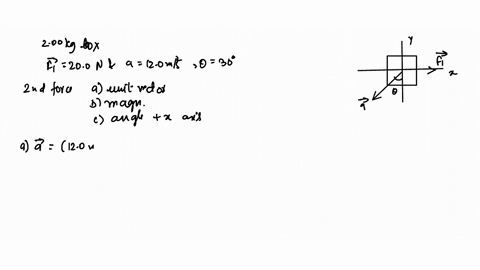 2.00 kg box
F₁ = 20.0 N & a = 12.0 m/s², θ = 30°
2nd force a) unit vector
b) magn.
c) angle +x axis
a) a⃗ = (12.0 m
y
F₁
x
θ
a⃗